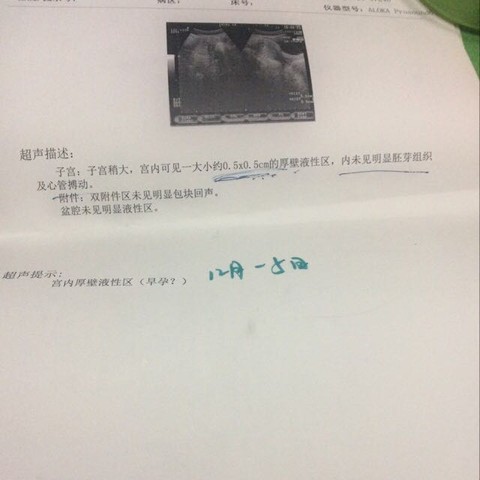 病区: 床号: 仪器型号: ALOKA
超声描述:
子宫: 子宫稍大, 宫内可见一大小约0.5x0.5cm的厚壁液性区, 内未见明显胚芽组织
及心管搏动。
附件: 双附件区未见明显包块回声。
盆腔未见明显液性区。
超声提示:
宫内厚壁液性区 (早孕?)
12月-5日